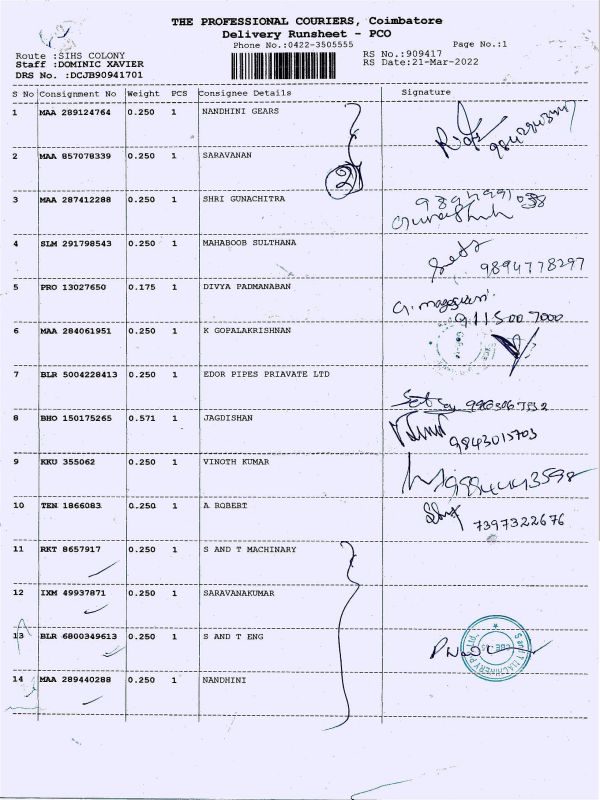 THE PROFESSIONAL COURIERS, Coimbatore
Delivery Runsheet - PCO
Phone No.:0422-3505555 Page No.:1
Route :SIHS COLONY RS No.:909417
Staff :DOMINIC XAVIER RS Date:21-Mar-2022
DRS No. :DCJB90941701
S No Consignment No Weight PCS Consignee Details Signature
1 MAA 289124764 0.250 1 NANDHINI GEARS
2 MAA 857078339 0.250 1 SARAVANAN
2
3 MAA 287412288 0.250 1 SHRI GUNACHITRA
4 SLM 291798543 0.250 1 MAHABOOB SULTHANA
9894778297
5 PRO 13027650 0.175 1 DIVYA PADMANABAN
9115007000
6 MAA 284061951 0.250 1 K GOPALAKRISHNAN
7 BLR 5004228413 0.250 1 EDOR PIPES PRIAVATE LTD
8 BHO 150175265 0.571 1 JAGDISHAN
9843015703
9 KKU 355062 0.250 1 VINOTH KUMAR
10 TEN 1866083 0.250 1 A ROBERT
7397322676
11 RKT 8657917 0.250 1 S AND T MACHINARY
12 IXM 49937871 0.250 1 SARAVANAKUMAR
13 BLR 6800349613 0.250 1 S AND T ENG
14 MAA 289440288 0.250 1 NANDHINI